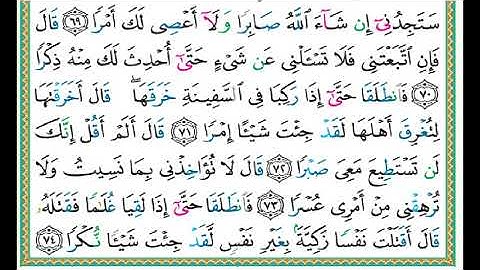 سَتَجِدُنِىٓ إِن شَآءَ ٱللَّهُ صَابِرًا وَلَآ أَعْصِى لَكَ أَمْرًا ﴿٦٩﴾ قَالَ
فَإِنِ ٱتَّبَعْتَنِى فَلَا تَسْـَٔلْنِى عَن شَىْءٍ حَتَّىٰٓ أُحْدِثَ لَكَ مِنْهُ ذِكْرًا
﴿٧٠﴾ فَٱنطَلَقَا حَتَّىٰٓ إِذَا رَكِبَا فِى ٱلسَّفِينَةِ خَرَقَهَا ۖ قَالَ أَخَرَقْتَهَا
لِتُغْرِقَ أَهْلَهَا لَقَدْ جِئْتَ شَيْـًٔا إِمْرًا ﴿٧١﴾ قَالَ أَلَمْ أَقُلْ إِنَّكَ
لَن تَسْتَطِيعَ مَعِىَ صَبْرًا ﴿٧٢﴾ قَالَ لَا تُؤَاخِذْنِى بِمَا نَسِيتُ وَلَا
تُرْهِقْنِى مِنْ أَمْرِى عُسْرًا ﴿٧٣﴾ فَٱنطَلَقَا حَتَّىٰٓ إِذَا لَقِيَا غُلَـٰمًا فَقَتَلَهُۥ
قَالَ أَقَتَلْتَ نَفْسًا زَكِيَّةًۢ بِغَيْرِ نَفْسٍ لَّقَدْ جِئْتَ شَيْـًٔا نُّكْرًا ﴿٧٤﴾